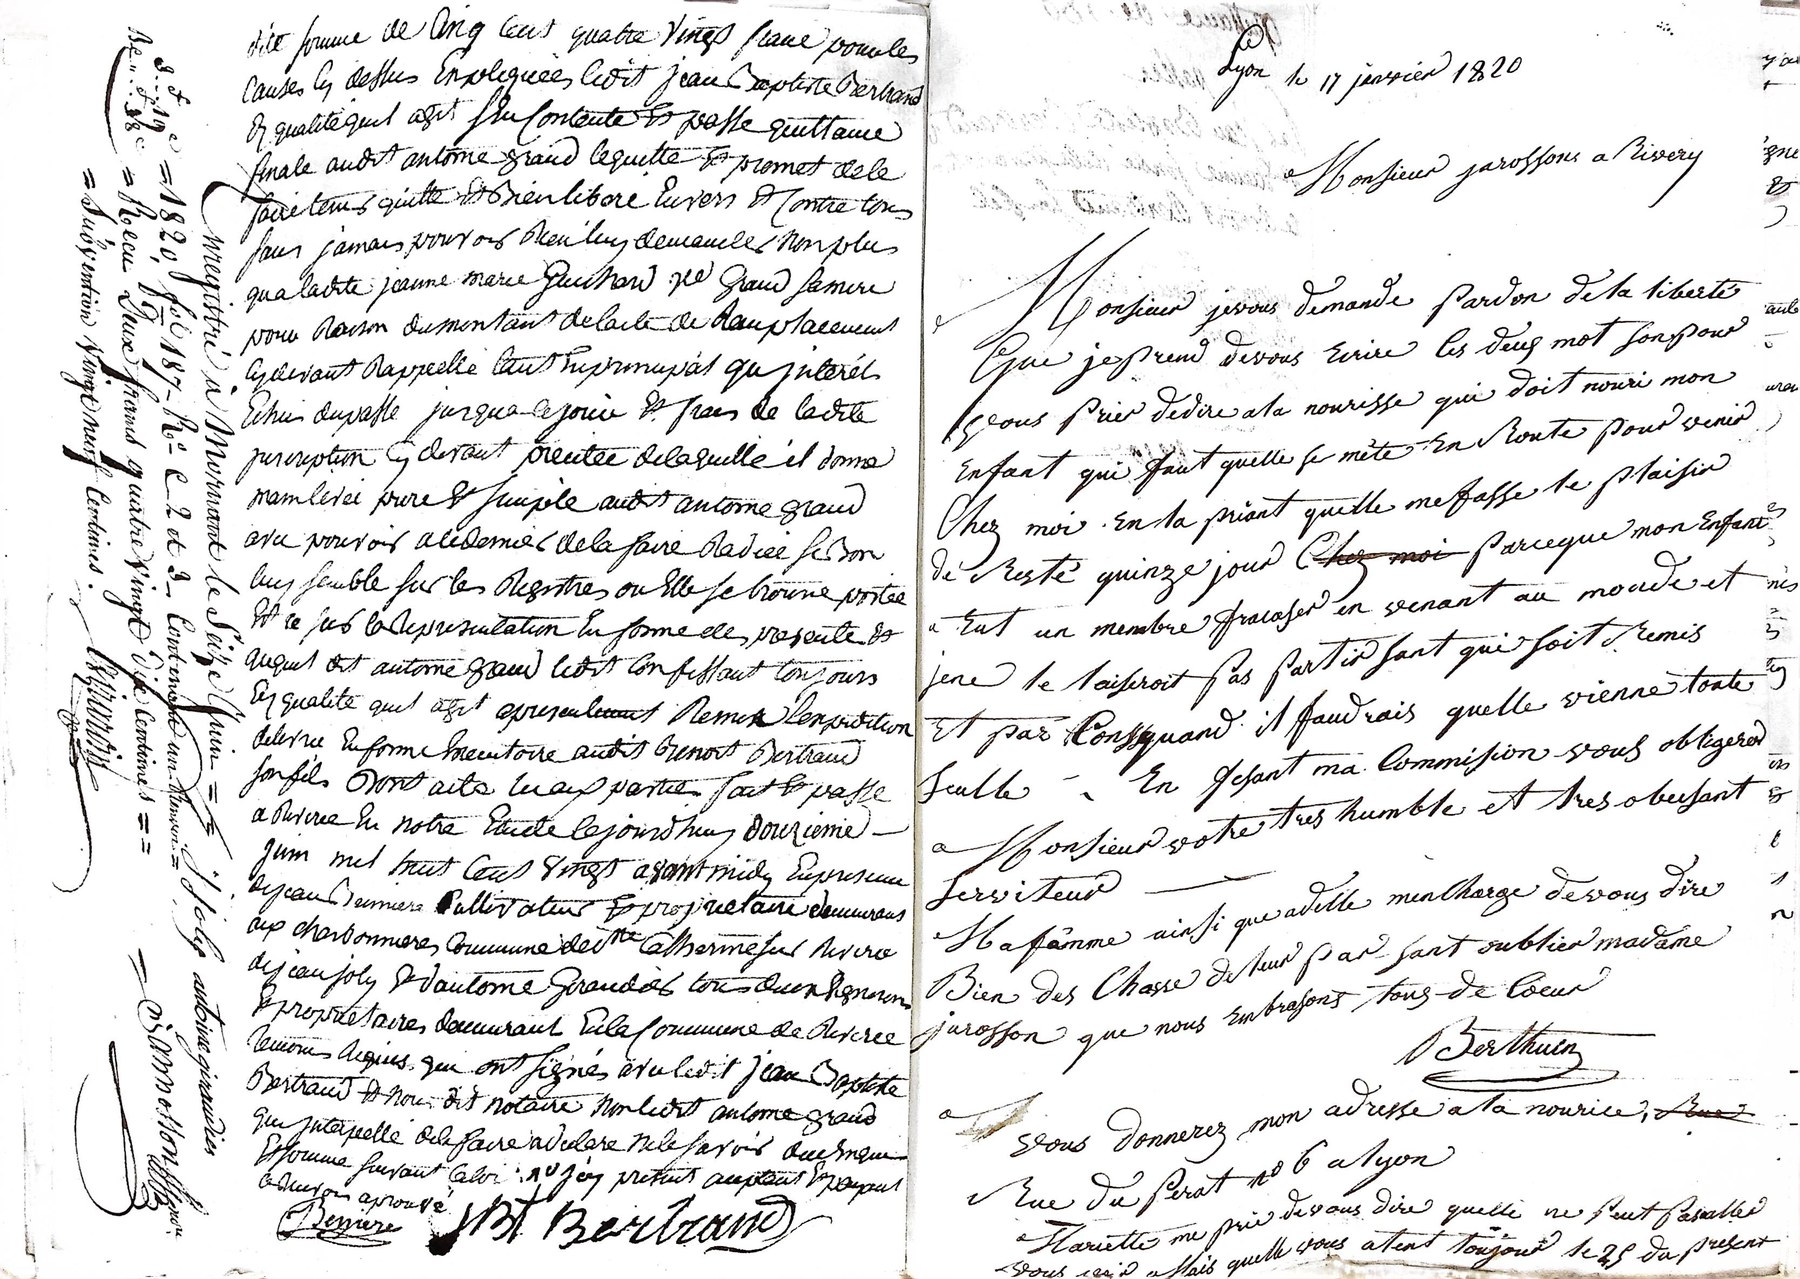 dite somme de Cinq Cent quatre vingt franc pour les
causes cy dessus Expliquées ledit jean Baptiste Bertrand
Es qualité quil agit sen Contente et passe quittance
finale audit antoine grand lequitte et promet dele
faire tenir quitte et Bien liberé Envers et Contre tous
sans jamais pouvoir Rien luy demander Non plus
qua ladite jeanne marie Guichard grand samere
pour Raison dumontant delacte de Remplacement
Cydevant Rappellé tant Enprincipal qu jnterets
Echus dupassé jusqua cejour et frais de ladite
jnscription Cy devant precitée delaquelle il donne
mainlevée pure et simple audit antoine grand
avec pouvoir acedernier delafaire Radiée se Bon
luy semble sur les Registres ou Elle se trouve portée
et ce sur la Representation En forme des presente et
quant dit antoine grand ledit Confessant toujours
Es qualité quil agit apresentement Remis Lexpedition
delivrée Enforme Executoire audit Benoit Bertrand
son fils Dont acte luaux parties fait et passé
a Riverie En notre Etude lejourdhuy douzieme
juin mil huit Cent vingt avant midy Enpresence
dejean Berniere Cultivateur et proprietaire demeurant
aux charbonnieres Commune deSte Catherine sur Riverie
dejean joly et dantoine Giraudier tous deux vignerons
et proprietaires demeurant En la Commune de Riverie
temoins Requis qui ont signés avec ledit jean Baptiste
Bertrand et Nous dit notaire Non ledit antoine grand
qui jnterpellé delefaire adeclaré Nelesavoir duement
Et sommé suivant laloi
approuvé
Berniere JBt Bertrand
Enregistré à Mornant le Seize Juin
1820 fol 187 Ro C 2 et 3 Contenant un Renvoi
Reçu Deux francs quatre vingt dix Centimes
Subvention vingt neuf Centimes.
J Joly antoine giraudier
Lyon le 17 janvier 1820
Monsieur jarossons a Rivery
Monsieur jevous demande pardon de la liberté
Que je prend devous Ecrire les deuq mot sonpour
vous Prier dedire ala nourisse qui doit nouri mon
Enfant qui faut quelle se méte En Route pour venir
Chez moi En la priant quelle mefasse le plaisir
dé Resté quinze jour Chez moi Parceque mon Enfant
a Eut un membre fracaser en venant au monde et
jene le laiseroit pas partir sant qui soit Remis
Et par Consquand il faudrais quelle vienne toute
seulle En fesant ma Commision vous obligerer
Monsieur votre tres humble et tres obeisant
serviteur
Ma fâmme ainsi que adelle menCharge devous dire
Bien des Chosse deleur par sant oublier madame
jarosson que nous Embrasons tous de Cœur
Berthuin
vous donnerez mon adresse a la nourice, Rue
Rue du Perat no 6 a lyon
Mariette me prie devous dire quelle ne peut pas aller
vous voir Mais quelle vous atent toujour le 25 du present